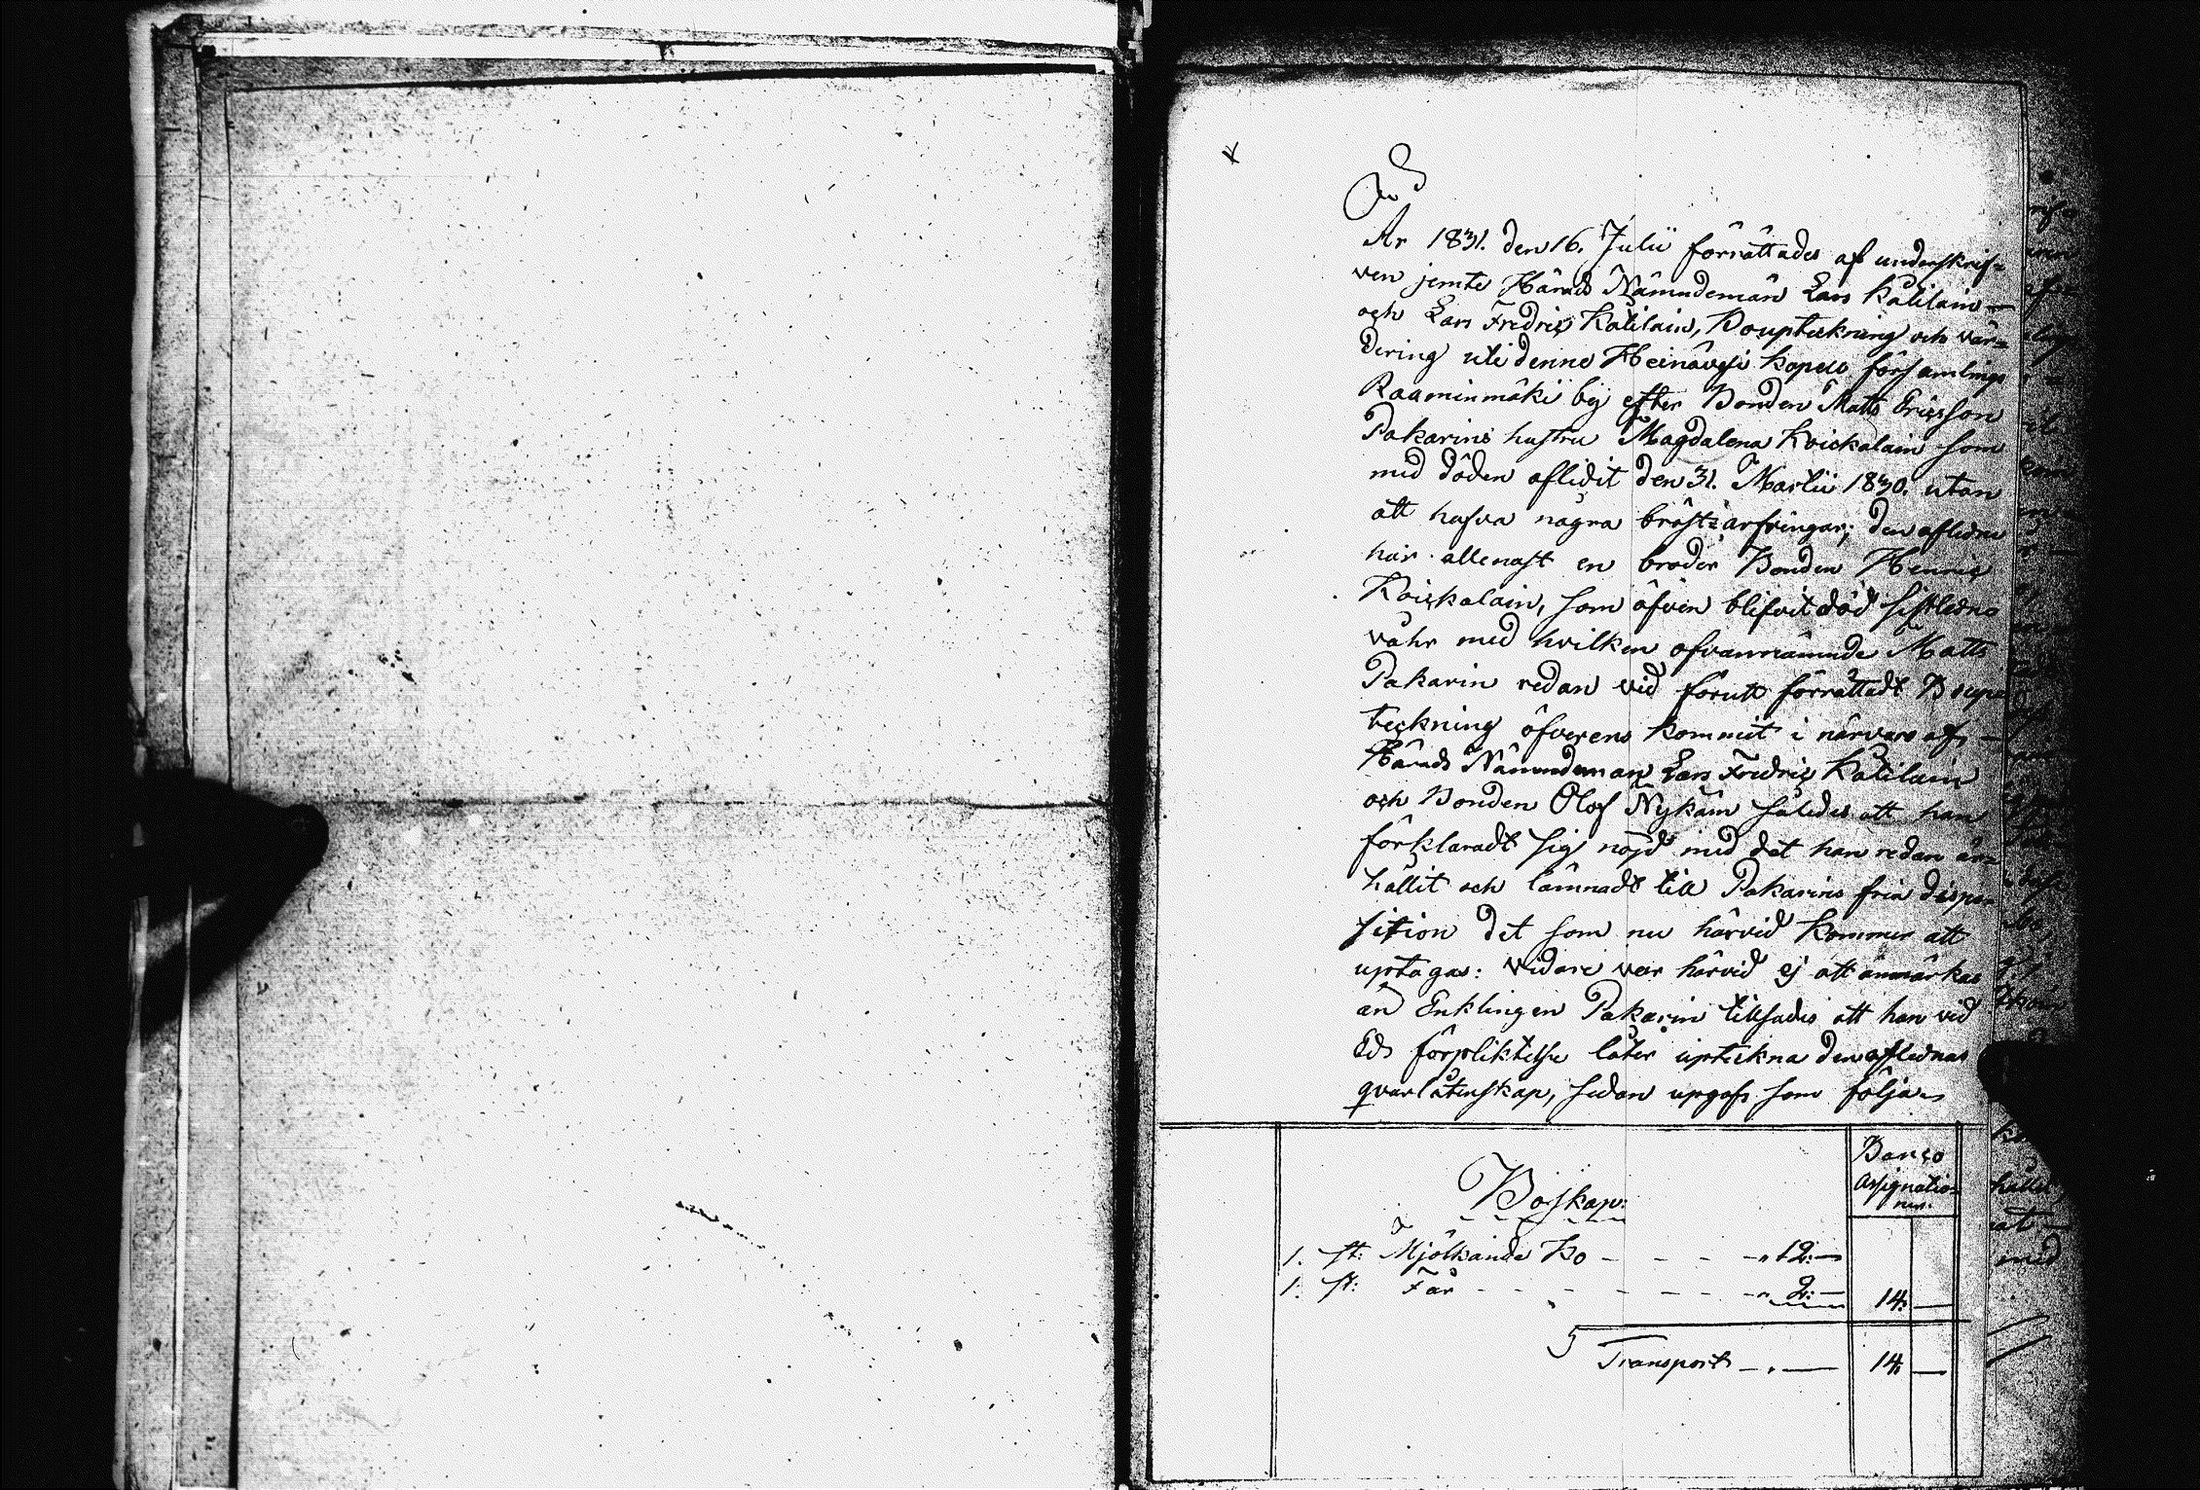 År 1831. den 16. Julii förrättades af underskrif=
ven jemte Härads Nämndemän Lars Katilain
och Lars Fredric Katilain, Bouptekning och vär=
dering uti denne Heinävesi Kapell församlings
Raaminmäki by efter Bonden Matts Ericsson
Pakarins hustru Magdalena Koickalain som
med döden aflidit den 31. Martii 1830. utan
att hafva några bröst=arfvingar; den aflidne
har allenast en broder Bonden Henric
Koickalain, som äfven blifvit död sistledne
våhr med hvilken ofvannämnde Matts
Pakarin redan vid förutt förrättadt Boup=
teckning öfverens kommit i närvaro af
Härads Nämndeman Lars Fredric Katilain
och Bonden Olof Nykäin således att han
förklaradt sig nöjd med det han redan er=
hållit och lämnadt till Pakarins fria dispo=
sition det som nu härvid kommer att
uptagas: vidare var härvid ej att anmärkas
än Enklingen Pakarin tillsades att han vid
Eds förpliktelse låter upteckna den aflednas
qvarlåtenskap, sedan upgafs som följer
Banco
Assignatio=
ner.
Boskap:
1. st: Mjölkande Ko - - - - " 12.—
1. st: Får - - - - - - " 2:— 14. —
Transport — . — 14. —
hålli
at
med